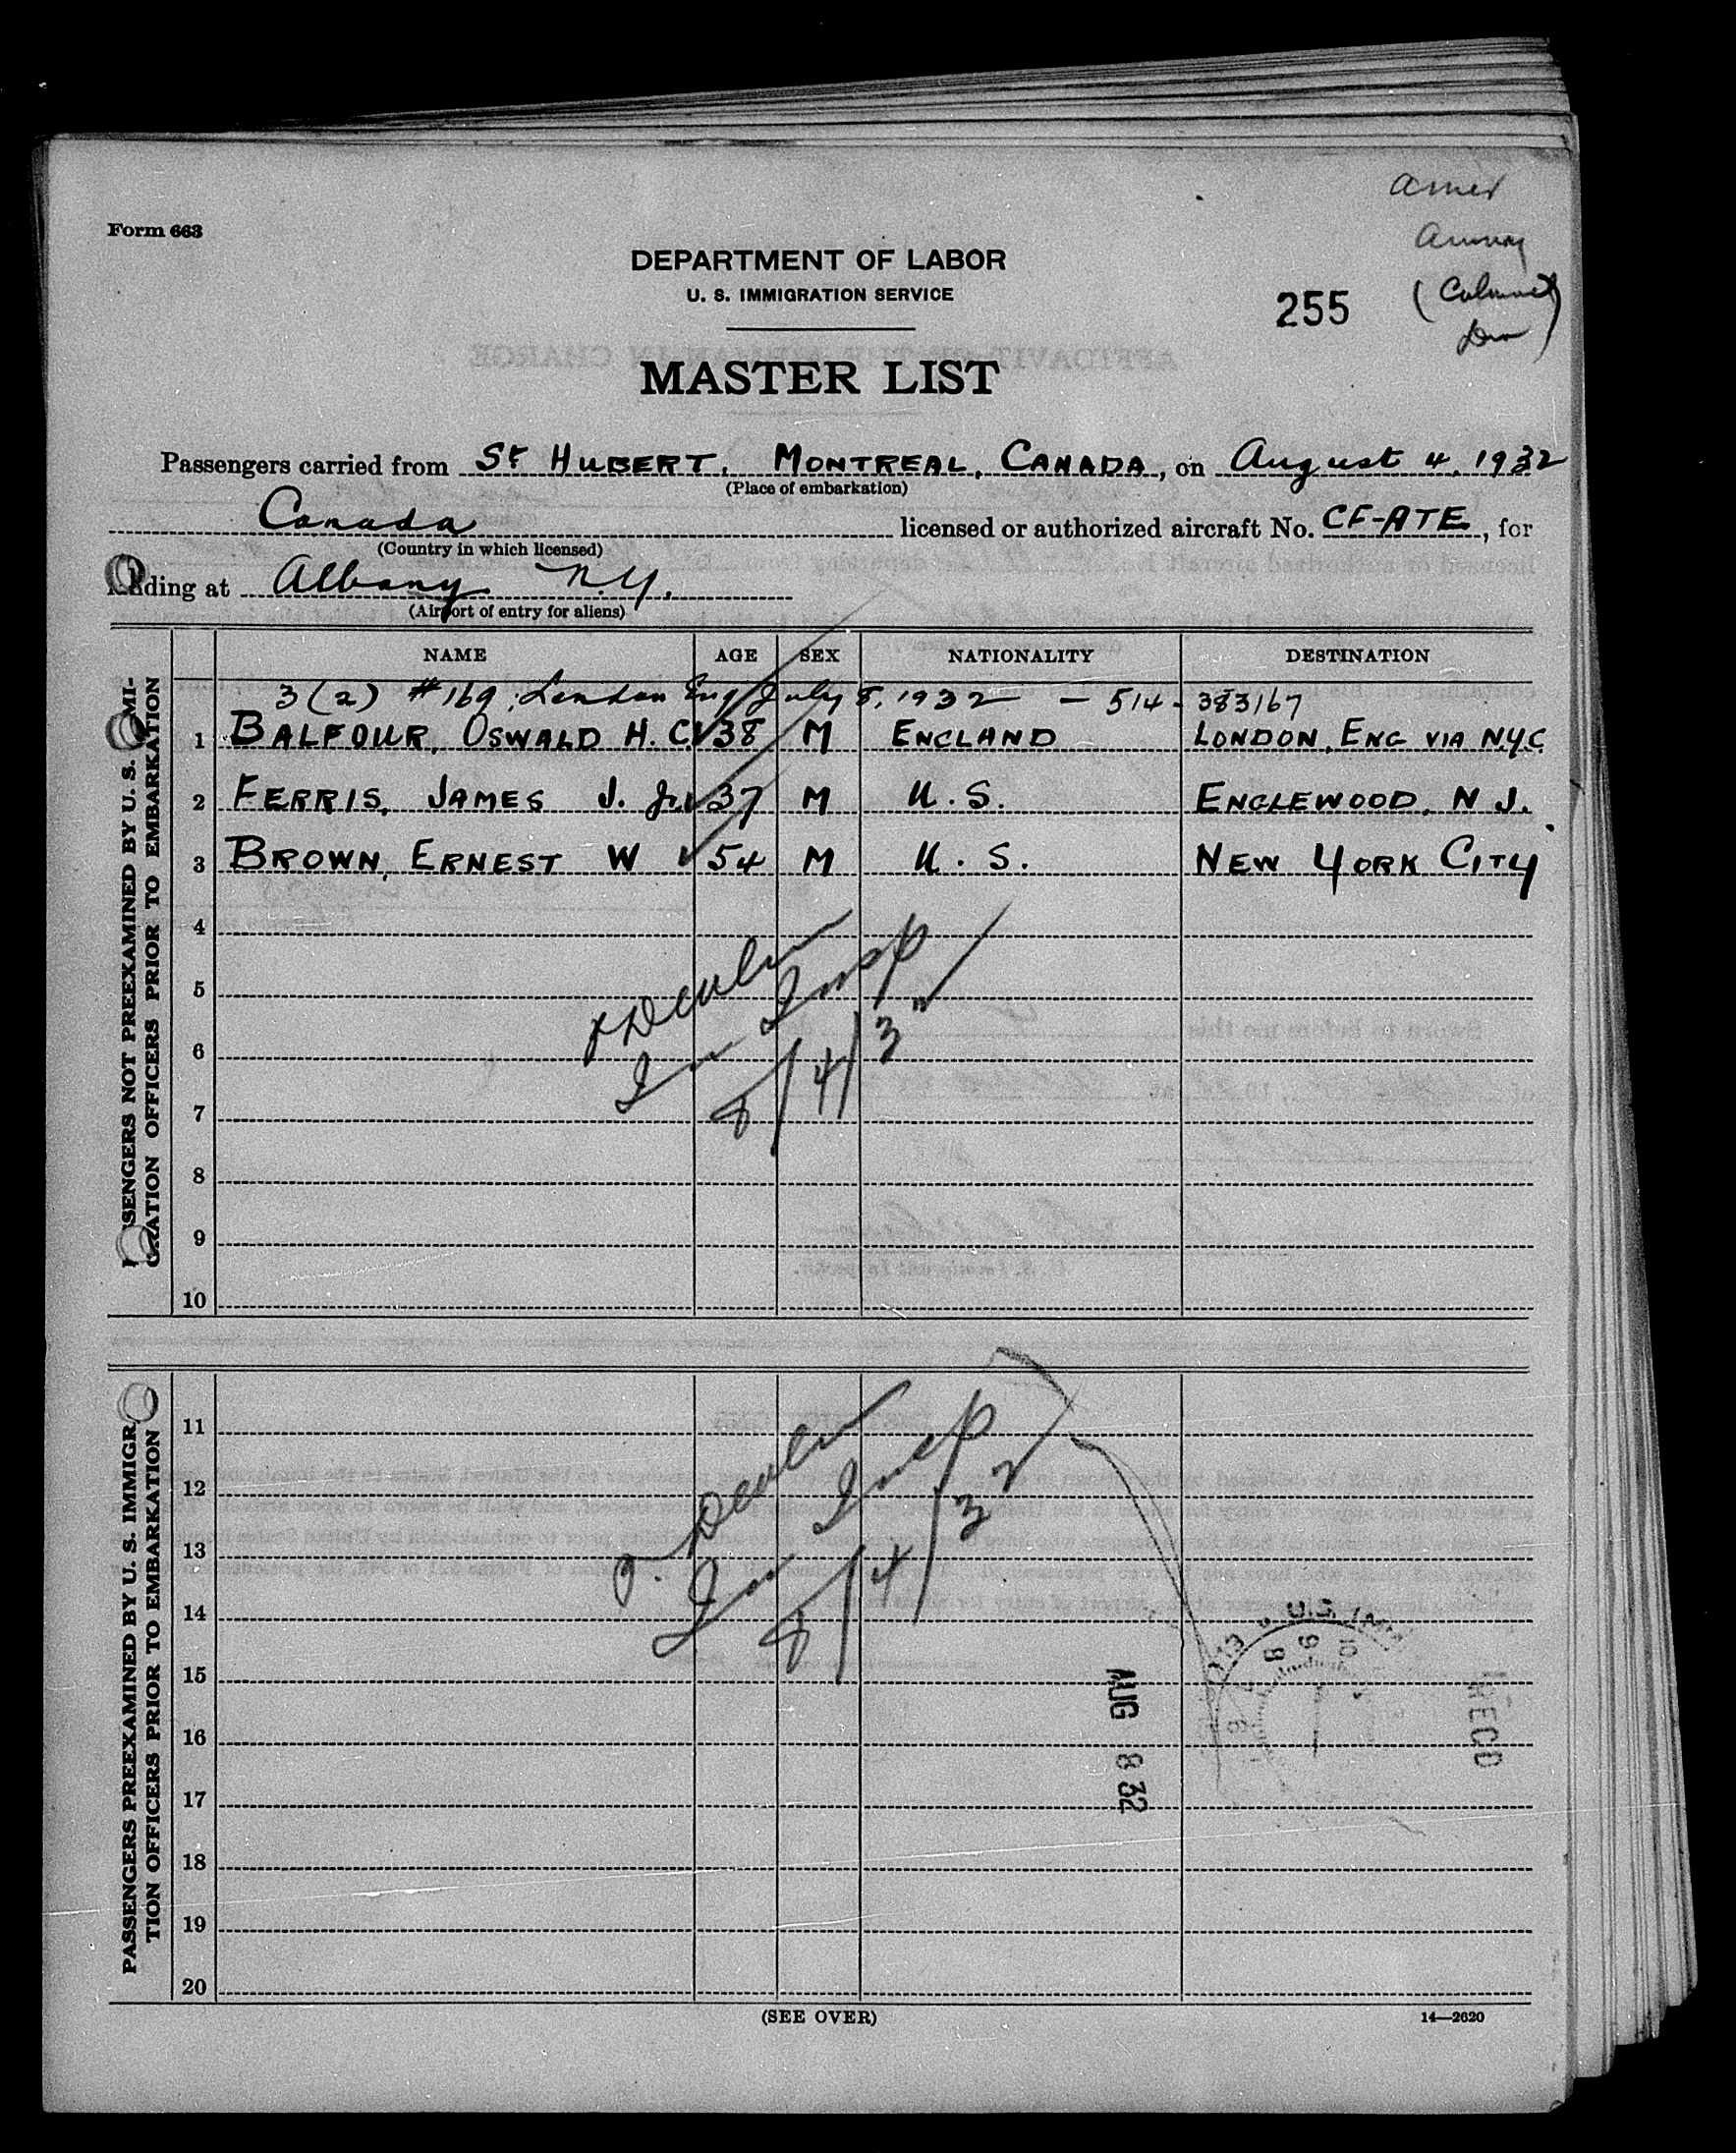 Form 663
DEPARTMENT OF LABOR
U. S. IMMIGRATION SERVICE
255
MASTER LIST
Passengers carried from St HUBERT, MONTREAL, CANADA, on August 4, 1932
(Place of embarkation)
Canada licensed or authorized aircraft No. CF-ATE, for
(Country in which licensed)
landing at Albany N.Y.
(Airport of entry for aliens)
PASSENGERS NOT PREEXAMINED BY U. S. IMMI-
GRATION OFFICERS PRIOR TO EMBARKATION
NAME AGE SEX NATIONALITY DESTINATION
3 (2) #169; London Eng July 8, 1932 - 514 - 383167
1 BALFOUR, OSWALD H. C. 38 M ENGLAND LONDON, ENG VIA N.Y.C
2 FERRIS, JAMES J. Jr. 37 M U.S. ENGLEWOOD, N J.
3 BROWN, ERNEST W 54 M U.S. NEW YORK CITY
4
5
6
7
8
9
10
Devlin
Im Insp
8/4/32
PASSENGERS PREEXAMINED BY U. S. IMMIGRA-
TION OFFICERS PRIOR TO EMBARKATION
11
12
13
14
15
16
17
18
19
20
Devlin
Im Insp
8/4/32
AUG 8 32
U.S. IMM
8 9 10
RECD
(SEE OVER)
14—2620